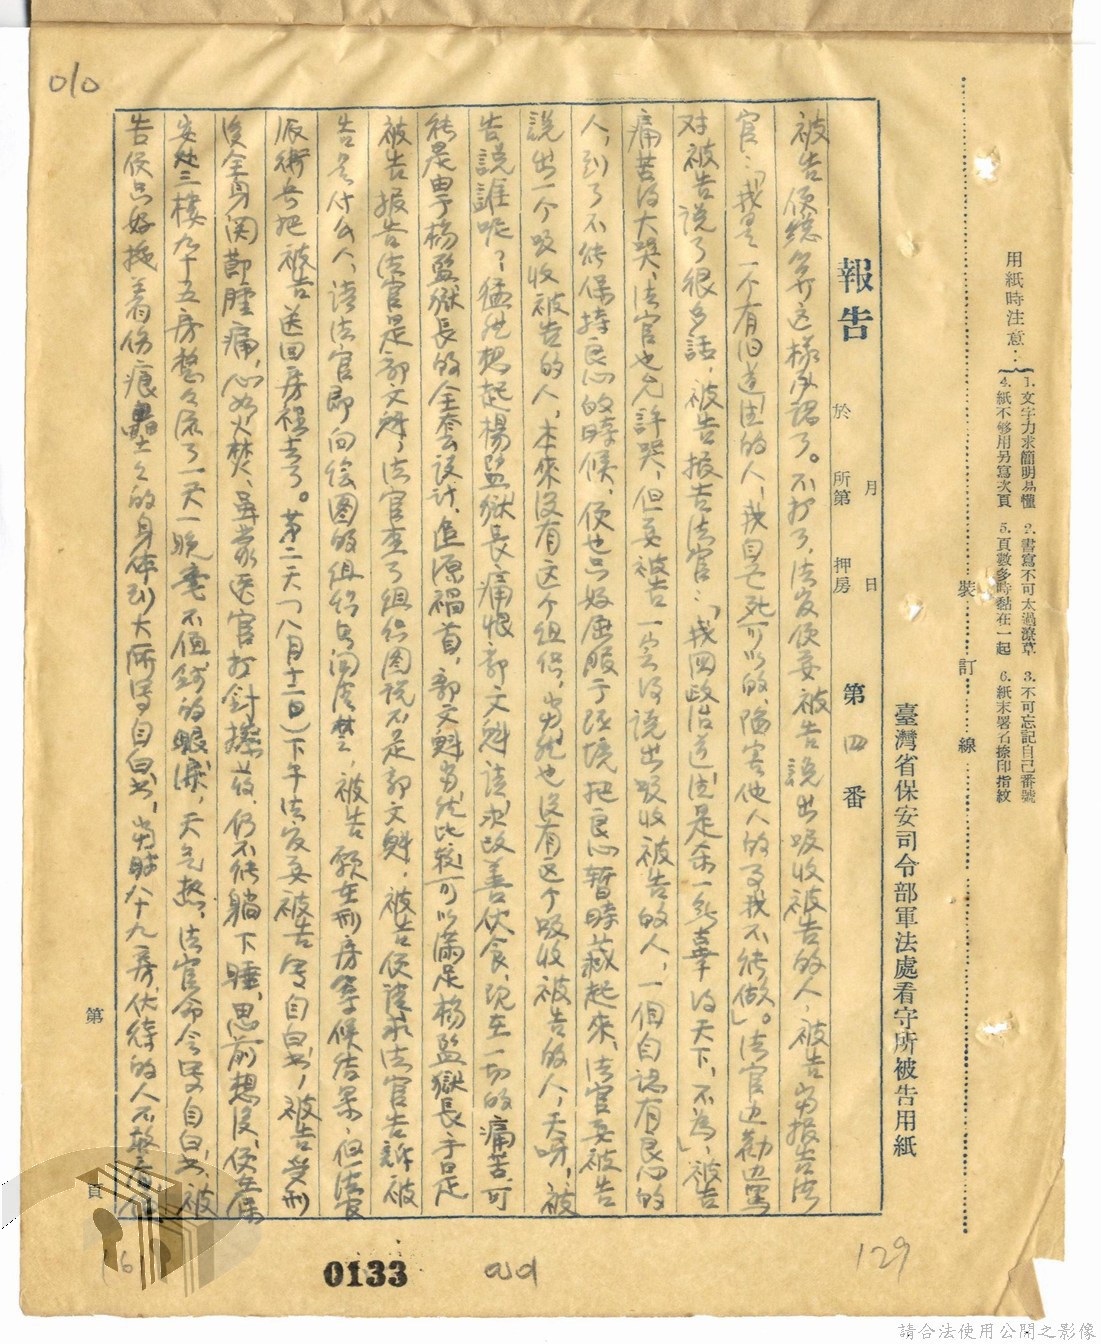 臺灣省保安司令部軍法處看守所被告用紙
用紙時注意：
1. 文字力求簡明易懂
2. 書寫不可太過潦草
3. 不可忘記自己番號
4. 紙不够用另寫次頁
5. 頁數多時黏在一起
6. 紙末署名捺印指紋
裝 訂 線
報告
於 所第 押房
月 日
第 四 番
被告便總算這樣承認了。不打了，法官便要被告說出吸收被告的人，被告當报告法
官：「我是一个有旧道德的人，我自己死可以的，陷害他人的事我不能做」。法官边勸边罵
对被告說了很多話，被告报告法官：「我因政治道德是余一無辜 天下，不為」，被告
痛苦得大哭，法官也允許哭，但要被告一定得說出吸收被告的人，一個自認有良心的
人，到了不能保持良心的時候，便也只好屈服于环境把良心暫時藏起來，法官要被告
說出一个吸收被告的人，本來没有这个組织，当然也没有这个吸收被告的人，天呀，被
告說誰呢？猛然想起楊監狱長痛恨郭文魁請求改善伙食，現在一切的痛苦，可
能是由于楊監狱長的全套设计，追源禍首，郭文魁当然比較可以滿足楊監狱長，于是
被告报告法官是郭文魁，法官查了組织图说不是郭文魁，被告便請求法官告訴被
告是什么人，請法官即向绘图的組织 ，被告願在刑房等候结果，但法官
派衛兵把被告送回房裡去了。第二天（八月十二日）下午法官要被告寫自白书，被告受刑
後全身関節腫痛，心如火焚，虽蒙医官打針擦藥，仍不能躺下睡，思前想後，便在保
安处三楼九十五房整々流了一天一晚毫不值錢的眼淚，天气熱，法官命令寫自白书，被
告便只好拖着伤痕 的身体到大所寫自白书，当時八十九房，伏待的人不敢看
第 頁
010
0133
129
請合法使用公開之影像